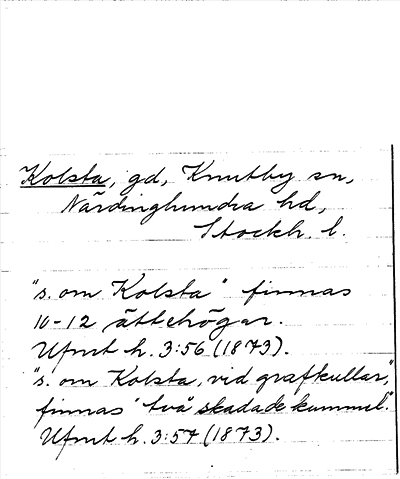 Kolsta, gd, Knutby sn,
Närdinghundra hd,
Stockh. l.
"s. om Kolsta" finnas
10-12 ättehögar.
Ufmt h. 3:56 (1873).
"s. om Kolsta, vid grafkullar,"
finnas "två skadade kummel".
Ufmt h. 3:57 (1873).